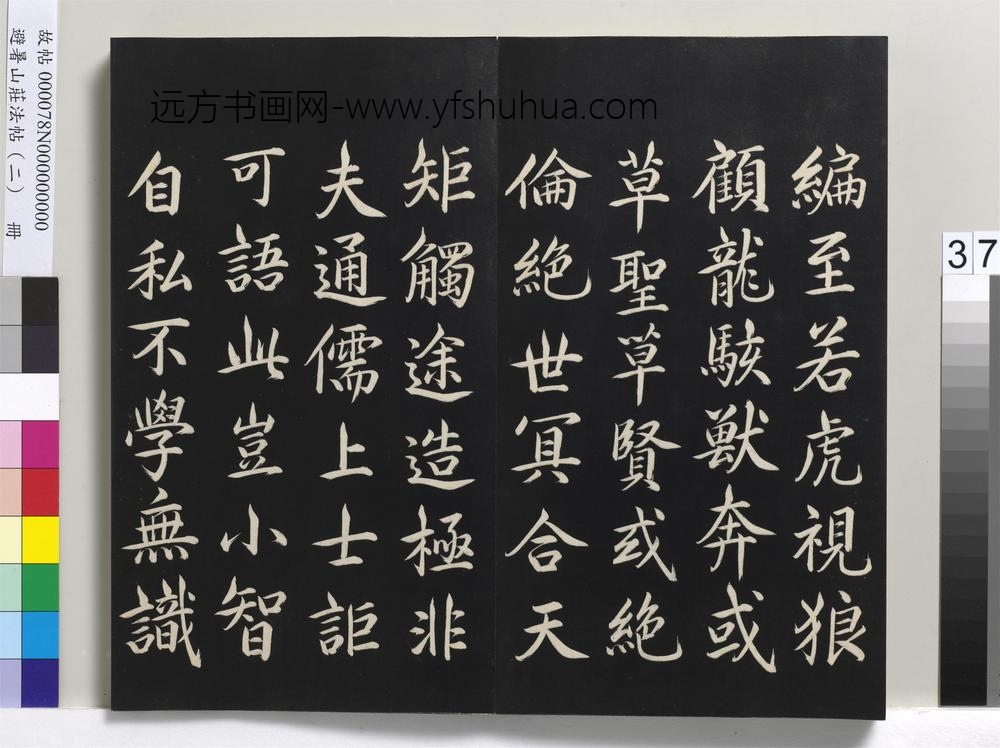 編至若虎視狼
顧龍駭獸奔或
草聖草賢或絕
倫絕世冥合天
矩觸途造極非
夫通儒上士詎
可語此豈小智
自私不學無識
远方书画网-www.yfshuhua.com
故帖 000078N000000000
避暑山莊法帖（二） 冊
37